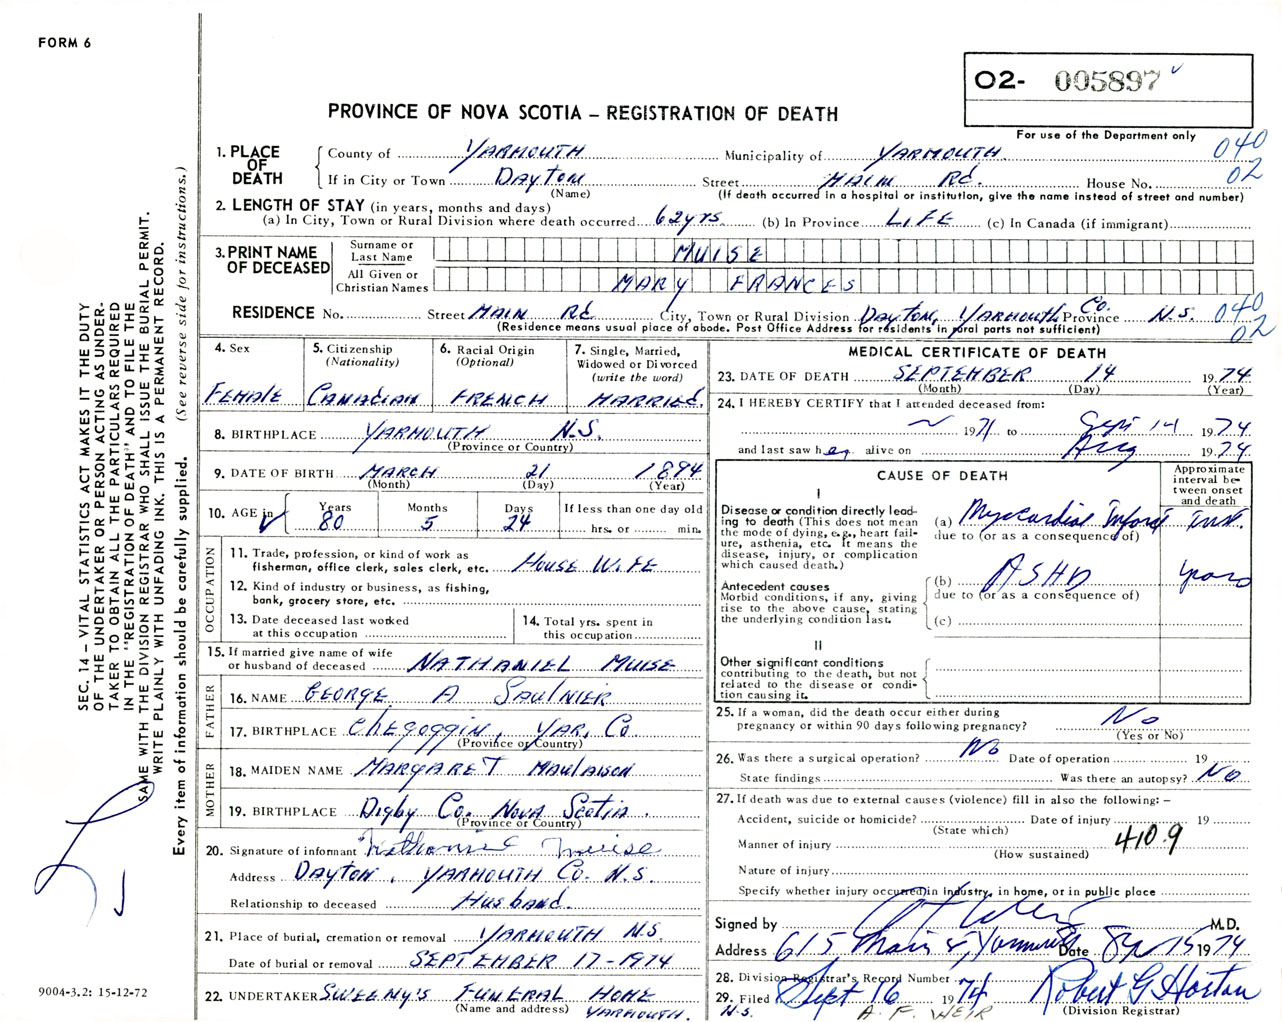 FORM 6
O2- 005897
PROVINCE OF NOVA SCOTIA – REGISTRATION OF DEATH
For use of the Department only
1. PLACE OF DEATH
County of YARMOUTH Municipality of YARMOUTH 040
If in City or Town DAYTON Street MAIN Rd. House No. 02
(Name) (If death occurred in a hospital or institution, give the name instead of street and number)
2. LENGTH OF STAY (in years, months and days)
(a) In City, Town or Rural Division where death occurred 62yrs. (b) In Province LIFE (c) In Canada (if immigrant)
3. PRINT NAME OF DECEASED
Surname or Last Name MUISE
All Given or Christian Names MARY FRANCES
RESIDENCE No. Street MAIN Rd City, Town or Rural Division DAYTON, YARMOUTH Co. Province N.S. 040 02
(Residence means usual place of abode. Post Office Address for residents in rural parts not sufficient)
4. Sex
FEMALE
5. Citizenship
(Nationality)
CANADIAN
6. Racial Origin
(Optional)
FRENCH
7. Single, Married,
Widowed or Divorced
(write the word)
MARRIED.
8. BIRTHPLACE YARMOUTH N.S.
(Province or Country)
9. DATE OF BIRTH MARCH 21 1894
(Month) (Day) (Year)
10. AGE in Years Months Days If less than one day old
80 5 24 hrs. or min.
OCCUPATION
11. Trade, profession, or kind of work as
fisherman, office clerk, sales clerk, etc. HOUSE WIFE
12. Kind of industry or business, as fishing,
bank, grocery store, etc.
13. Date deceased last worked
at this occupation
14. Total yrs. spent in
this occupation
15. If married give name of wife
or husband of deceased NATHANIEL MUISE
FATHER
16. NAME GEORGE A SAULNIER
17. BIRTHPLACE CHEGOGGIN, YAR. Co.
(Province or Country)
MOTHER
18. MAIDEN NAME MARGARET
19. BIRTHPLACE Digby Co. NOVA SCOTIA.
(Province or Country)
20. Signature of informant Nathaniel Muise
Address DAYTON, YARMOUTH Co. N.S.
Relationship to deceased HUSBAND.
21. Place of burial, cremation or removal YARMOUTH N.S.
Date of burial or removal SEPTEMBER 17-1974
22. UNDERTAKER SWEENY'S FUNERAL HOME
(Name and address) YARMOUTH. N.S.
MEDICAL CERTIFICATE OF DEATH
23. DATE OF DEATH SEPTEMBER 14 1974
(Month) (Day) (Year)
24. I HEREBY CERTIFY that I attended deceased from:
~ 1971 to Sept 14 1974
and last saw her alive on Aug 1974
CAUSE OF DEATH
Approximate
interval be-
tween onset
and death
I
Disease or condition directly lead-
ing to death (This does not mean
the mode of dying, e.g., heart fail-
ure, asthenia, etc. It means the
disease, injury, or complication
which caused death.)
(a) Myocardial Infarct inst.
due to (or as a consequence of)
Antecedent causes
Morbid conditions, if any, giving
rise to the above cause, stating
the underlying condition last.
(b) ASHD years
due to (or as a consequence of)
(c)
II
Other significant conditions
contributing to the death, but not
related to the disease or condi-
tion causing it.
25. If a woman, did the death occur either during
pregnancy or within 90 days following pregnancy? No
(Yes or No)
26. Was there a surgical operation? No Date of operation 19
State findings Was there an autopsy? No
27. If death was due to external causes (violence) fill in also the following: –
Accident, suicide or homicide? Date of injury 19
(State which)
Manner of injury 410.9
(How sustained)
Nature of injury
Specify whether injury occurred in industry, in home, or in public place
Signed by A F Weir M.D.
Address 615 Main St, Yarmouth Date 15 1974
28. Division Registrar's Record Number
29. Filed Sept 16 1974 Robert G Horton
(Division Registrar)
A. F. WEIR
SEC. 14 – VITAL STATISTICS ACT MAKES IT THE DUTY
OF THE UNDERTAKER OR PERSON ACTING AS UNDER-
TAKER TO OBTAIN ALL THE PARTICULARS REQUIRED
IN THE "REGISTRATION OF DEATH" AND TO FILE THE
SAME WITH THE DIVISION REGISTRAR WHO SHALL ISSUE THE BURIAL PERMIT.
WRITE PLAINLY WITH UNFADING INK. THIS IS A PERMANENT RECORD.
Every item of information should be carefully supplied. (See reverse side for instructions.)
9004-3.2: 15-12-72